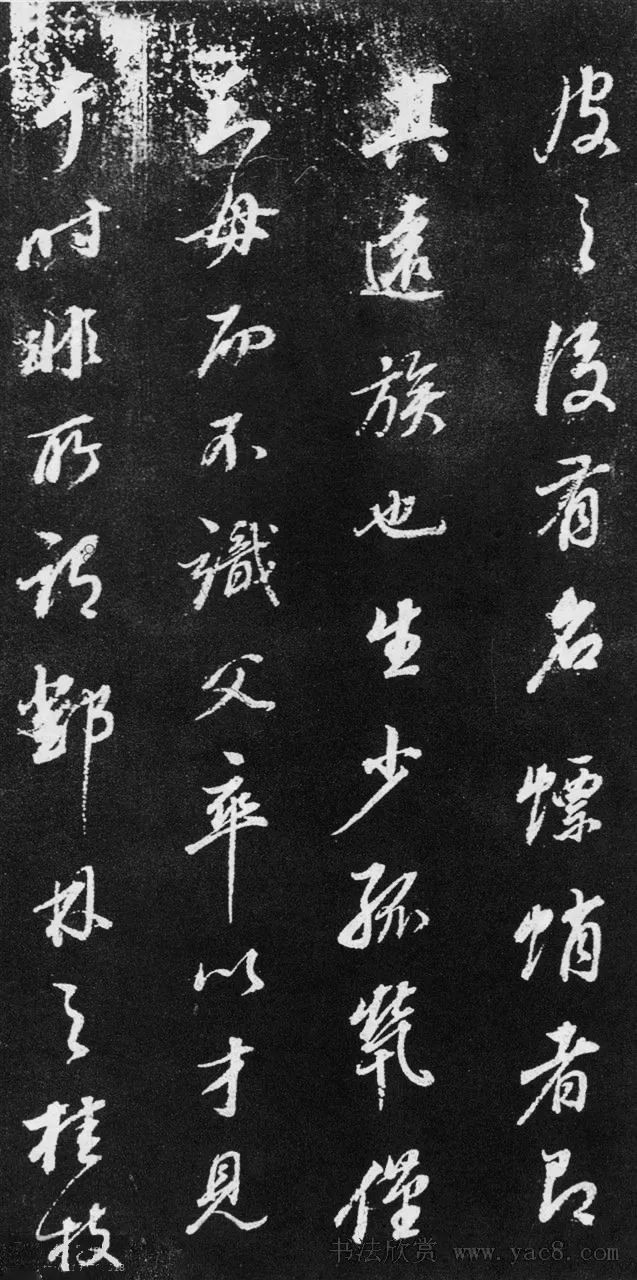 皮之後有名螵蛸者即
其遠族也生少孤煢僅
知母而不識父卒以才見
于時非所謂鄧林之桂枝
书法欣赏 www.yac8.com